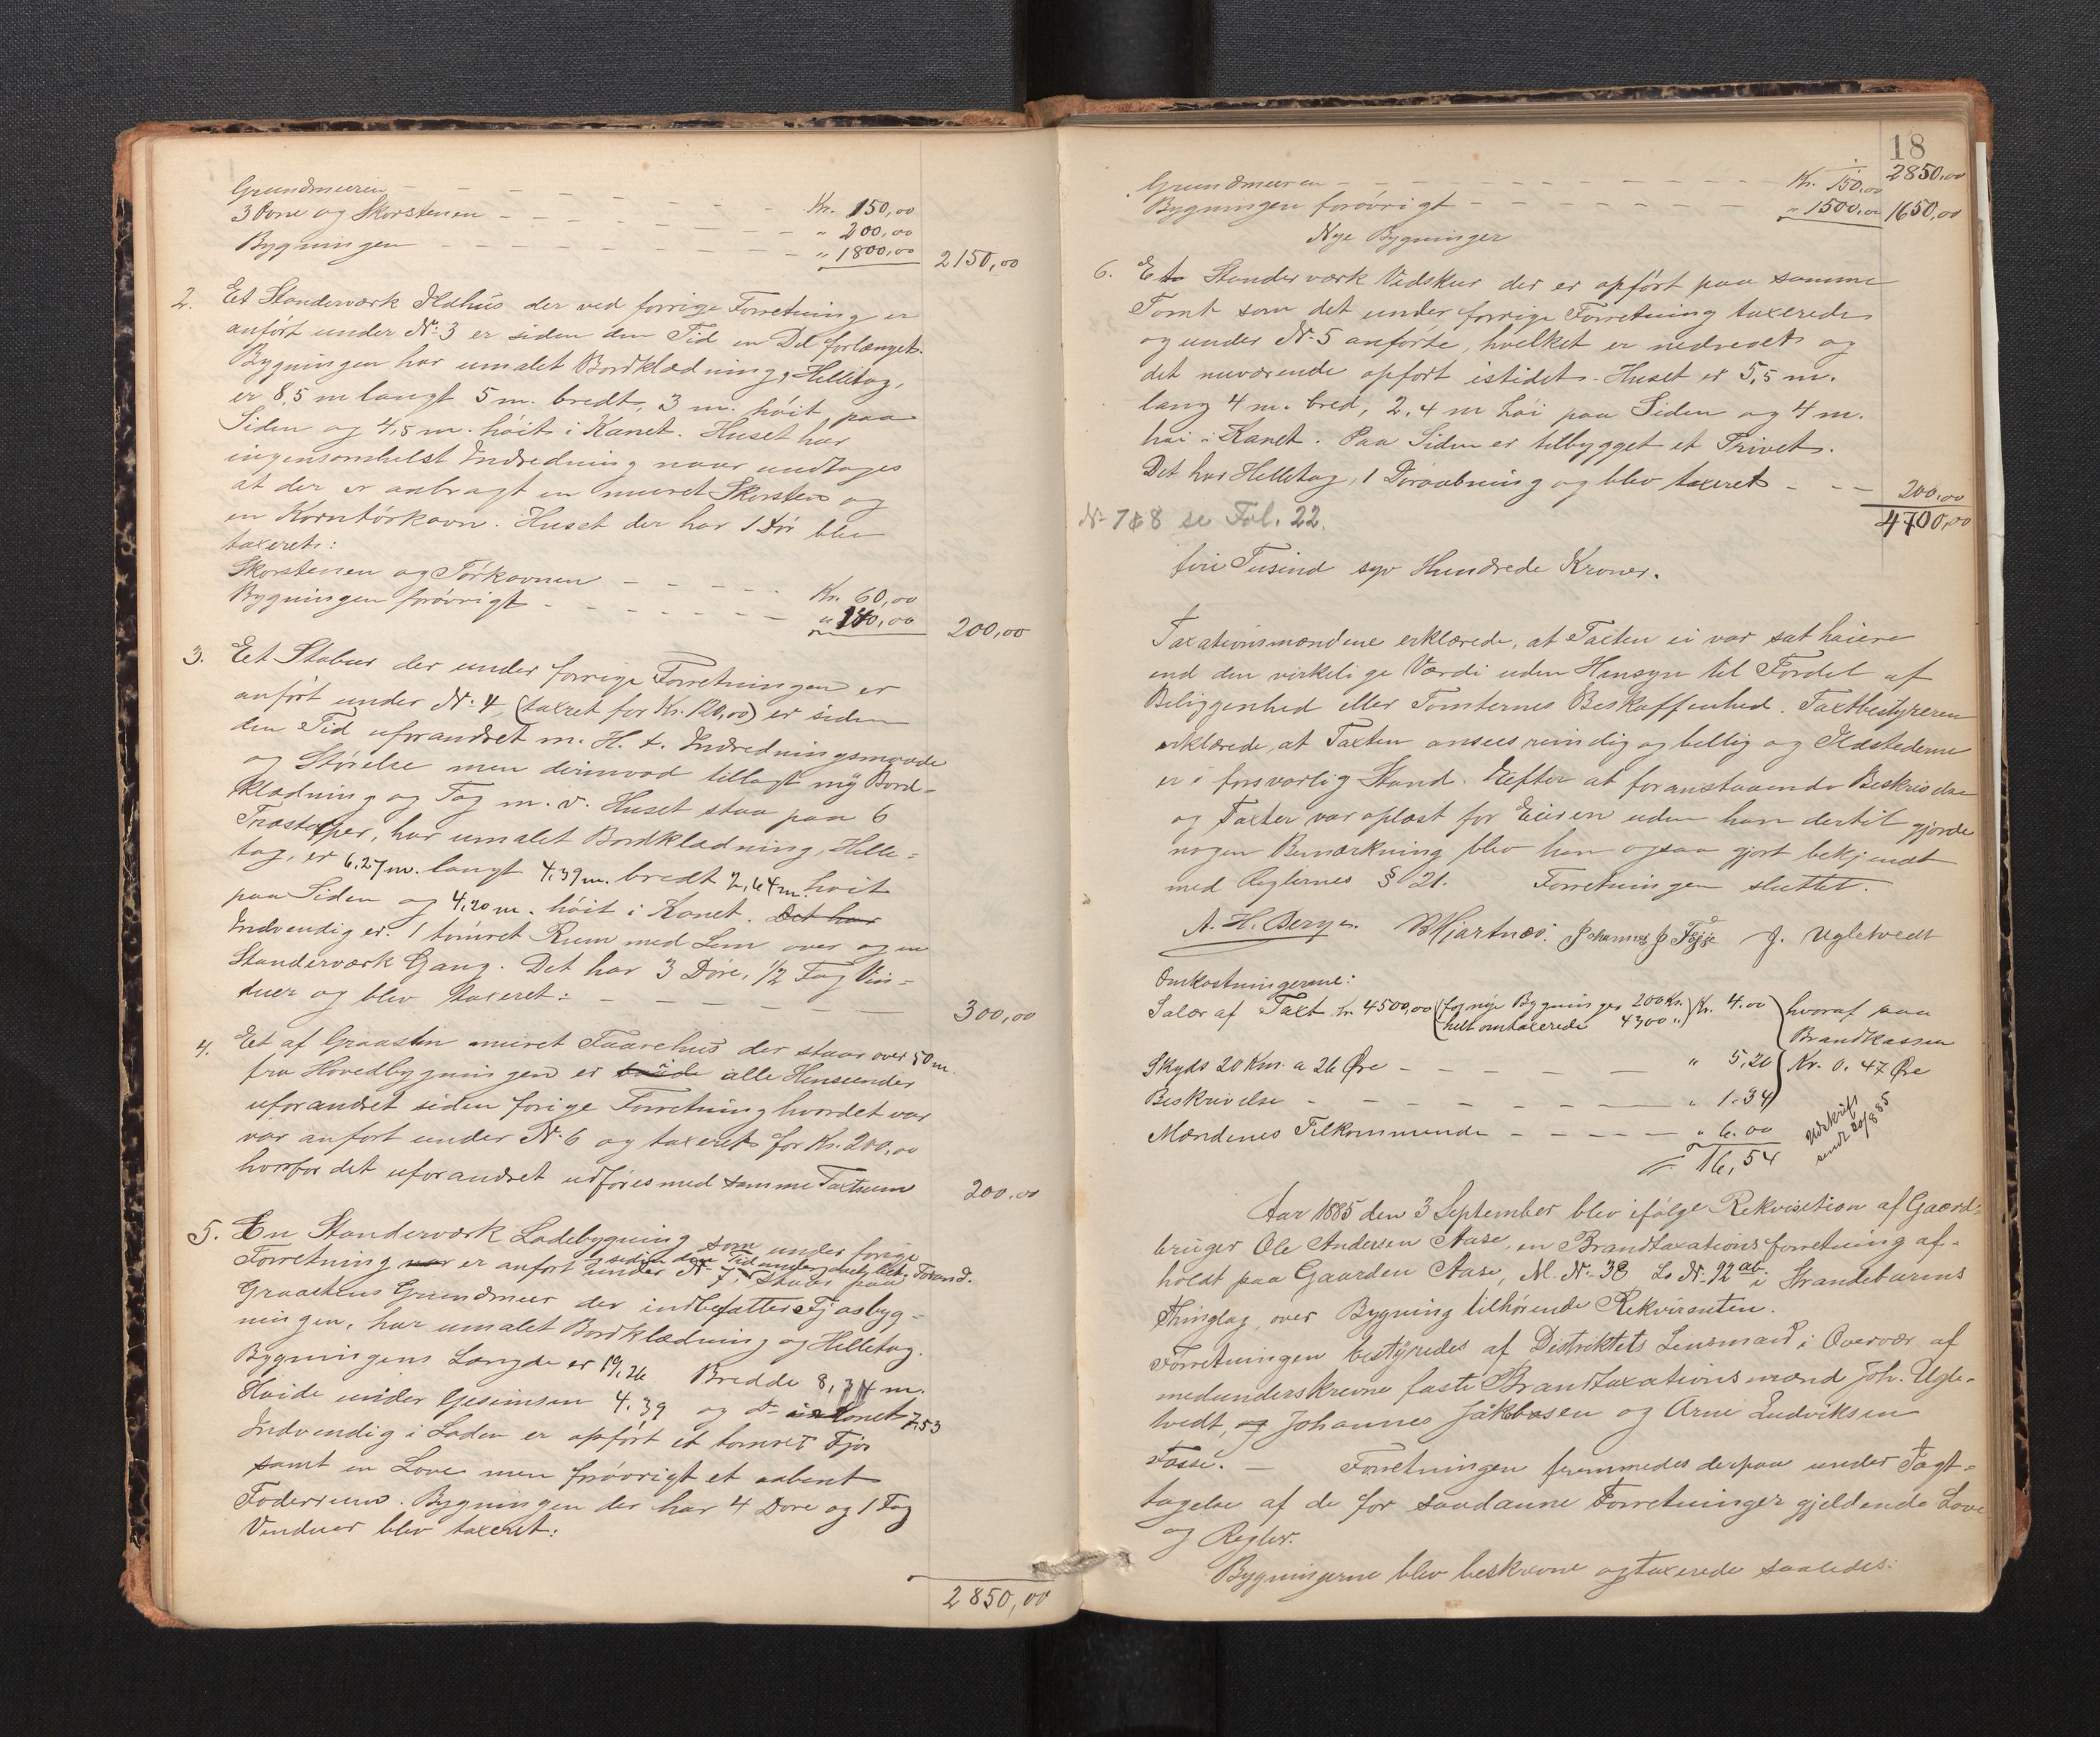 Grundmuren - - - - - - - Kr. 150,00
3 Ovne og Skorstenen - - - - - - " 200,00
Bygningen - - - - - - - " 1800,00 2150,00
2. Eet Standerværk Ildhus der ved forrige Forretning er
anført under No 3 er siden den Tid en Del forlænget.
Bygningen har umalet Bordklædning, Helletag,
er 8,5 m langt 5 m. bredt, 3 m. høit paa
Siden og 4,5 m. høit i Rønet. Huset har
ingensomhelst Indredning naar undtages
at der er anbragt en muret Skorsten og
en Korntørkovn. Huset der har 1 Dør blev
taxeret:
Skorstenen og Tørkovnen - - - - Kr. 60,00
Bygningen forøvrigt - - - - - " 140,00 200,00
3. Eet Stabur der under forrige Forretningen er
anført under No 4 (taxret for Kr. 120,00) er siden
den Tid uforandret m. H. t. Indredningsmaade
og Størelse men derimod tillagt ny Bord-
klædning og Tag m. v. Huset staa paa 6
Træstolper, har umalet Bordklædning, Helle-
tag, er 6,27 m. langt 4,39 m. bredt 2,64 m. høit
paa Siden og 4,20 m. høit i Rønet. Det har
Indvendig er 1 tømret Rum med Lem over og en
Standerværk Gang. Det har 3 Døre, 1/2 Fag Vin-
duer og blev taxeret: - - - - - 300,00
4. Eet af Graasten muret Faarehus der staar over 50 m.
fra Hovedbygningen er alle Henseender
uforandret siden forige Forretning hvordet var
var anført under No 6 og taxeret for Kr. 200,00
hvorfor det uforandret udføres med samme Taxtsum 200,00
5. En Standerværk Ladebygning som under forige
Forretning var er anført under No 7. siden den Tid undergaaet betyd. Forand.
Staar paa
Graastens Grundmur der indbefatter Fjøsbyg-
ningen, har umalet Bordklædning og Helletag.
Bygningens Længde er 19,26 Bredde 8,34 m.
Høide under Gesimsen 4,39 og Do i Rønet 7,53
Indvendig i Laden er opført et tømret Fjøs
samt en Love men forøvrigt et aabent
Foderrum. Bygningen der har 4 Døre og 1 Fag
Vinduer blev taxeret:
2850,00
18
2850,00
Grundmuren - - - - - - - Kr. 150,00
Bygningen forøvrigt - - - - - - " 1500,00 1650,00
Nye Bygninger
6. Et Standerværk Vedskur der er opført paa samme
Tomt som det under forrige Forretning taxerede
og under No 5 anførte, hvilket er nedrevet og
det nuværende opført istedet. Huset er 5,5 m.
lang 4 m. bred, 2,4 m høi paa Siden og 4 m.
høi i Rønet. Paa Siden er tilbygget et Privet.
Det har Helletag, 1 Døraabning og blev taxeret - - - 200,00
No 7 & 8 se Fol. 22. 4700,00
fire Tusind syv Hundrede Kroner.
Taxationsmændene erklærede, at Taxten ei var sat høiere
end den virkelige Værdi uden Hensyn til Fordel af
Beliggenhed eller Tomternes Beskaffenhed. Taxtbestyreren
erklærede, at Taxten ansees rimelig og billig og Ildstederne
er i forsvarlig Stand. Efter at foranstaaende Beskrivelse
og Taxter var oplæst for Eieren uden han dertil gjorde
nogen Bemærkning blev han ogsaa gjort bekjendt
med Reglernes § 21. Forretningen sluttet.
A. H. Berge. B Hjartnæs. Johannes J. Fosse J. Ugletvedt
Omkostningerne:
Salær af Taxt Kr 4500,00 (for nye Bygninger 200 Kr.) Kr. 4.00 hvoraf paa
(helt omtaxerede 4300 ") Brandkassen
Skyds 20 Km. a 26 Øre - - - - - " 5,20 Kr. 0. 47 Øre
Beskrivelse - - - - - - " 1.34
Mændenes Tilkommende - - - - - " 6.00
16,54
Udskrift
sendt 20/8 85
Aar 1885 den 3 September blev ifølge Rekvisition af Gaard-
bruger Ole Andersen Aase, en Brandtaxationsforretning af-
holdt paa Gaarden Aase, M. No 38 L. No 92 ab i Strandebarms
Thinglag, over Bygning tilhørende Rekvirenten.
Forretningen bestyredes af Distriktets Lensmand i Overvær af
medunderskrevne faste Brandtaxationsmænd Joh. Ugle-
tvedt, og Johannes Jakobsen og Arne Ludviksen
Fosse. — Forretningen fremmedes derpaa under Iagt-
tagelse af de for saadanne Forretninger gjeldende Love
og Regler.
Bygningerne blev beskrevne og taxerede saaledes: